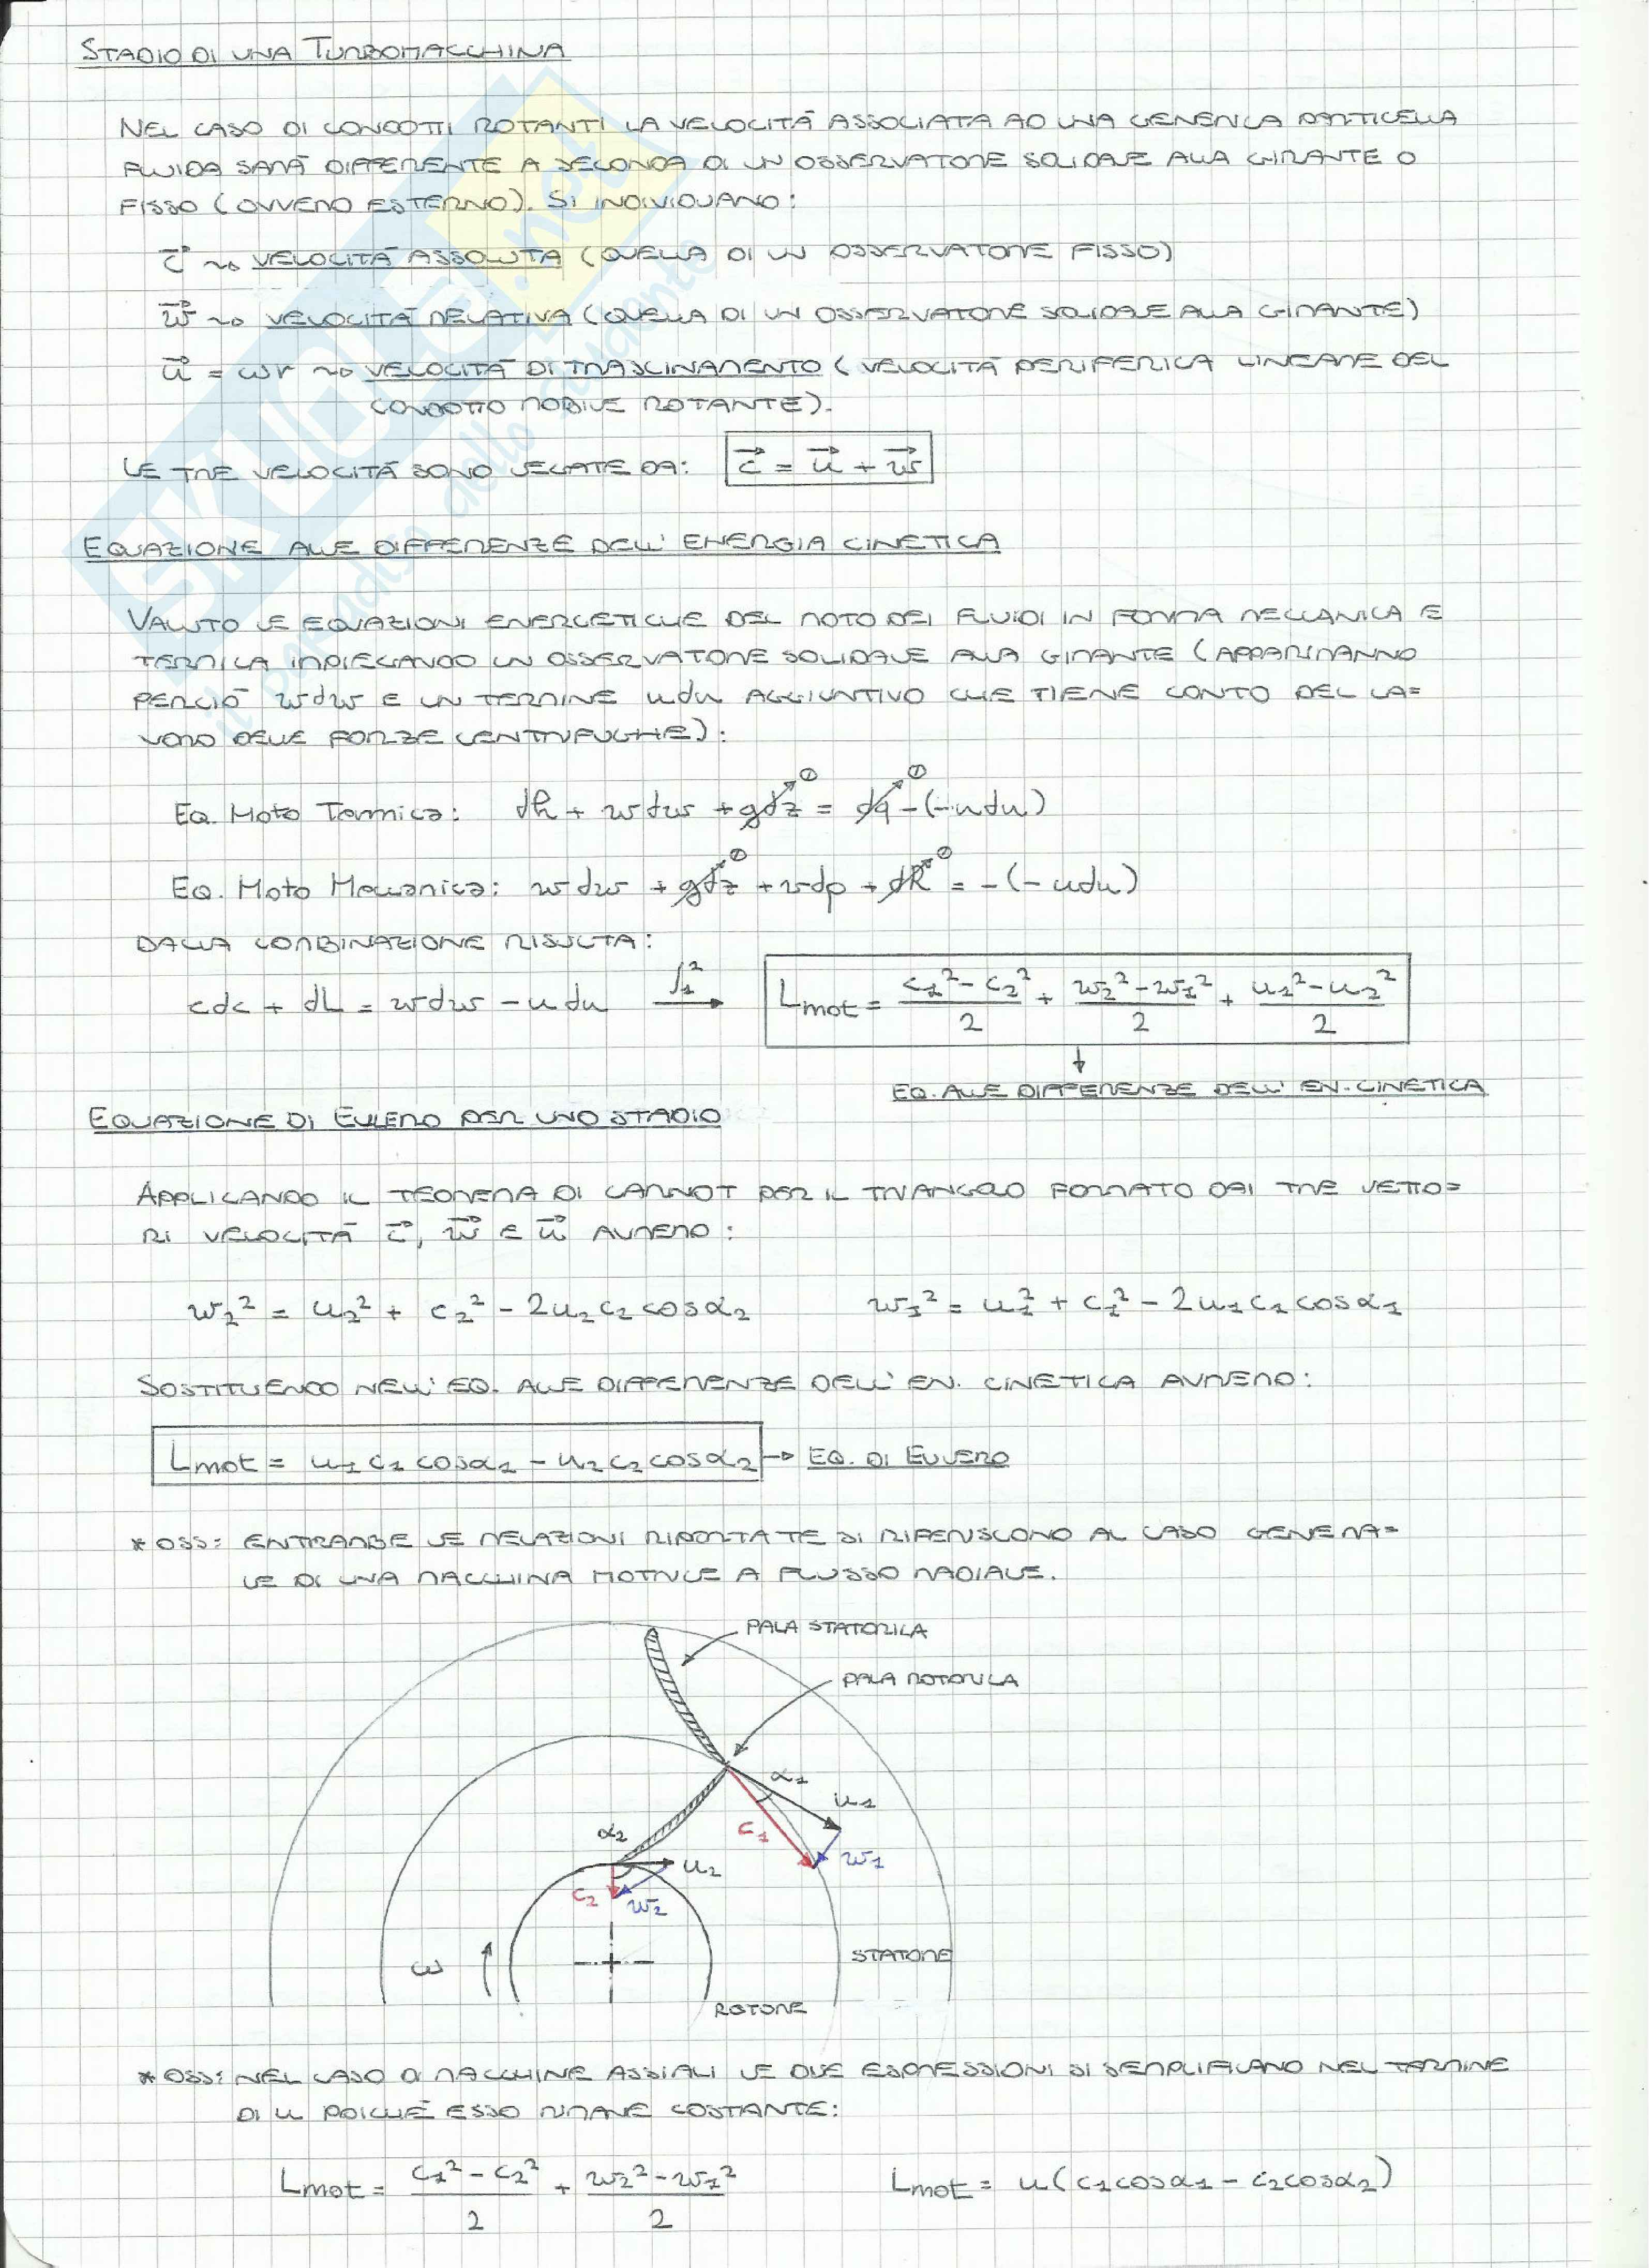 STADIO DI UNA TURBOMACCHINA
NEL CASO DI CONDOTTI ROTANTI LA VELOCITÀ ASSOCIATA AD UNA GENERICA PARTICELLA
FLUIDA SARÀ DIFFERENTE A SECONDA DI UN OSSERVATORE SOLIDALE ALLA GIRANTE O
FISSO (OVVERO ESTERNO). SI INDIVIDUANO:
c⃗ ~> VELOCITÀ ASSOLUTA (QUELLA DI UN OSSERVATORE FISSO)
w⃗ ~> VELOCITÀ RELATIVA (QUELLA DI UN OSSERVATORE SOLIDALE ALLA GIRANTE)
u⃗ = ωr ~> VELOCITÀ DI TRASCINAMENTO (VELOCITÀ PERIFERICA LINEARE DEL
CONDOTTO MOBILE ROTANTE).
LE TRE VELOCITÀ SONO LEGATE DA: c⃗ = u⃗ + w⃗
EQUAZIONE ALLE DIFFERENZE DELL'ENERGIA CINETICA
VALUTO LE EQUAZIONI ENERGETICHE DEL MOTO DEI FLUIDI IN FORMA MECCANICA E
TERMICA IMPIEGANDO UN OSSERVATORE SOLIDALE ALLA GIRANTE (APPARIRANNO
PERCIÒ wdw E UN TERMINE udu AGGIUNTIVO CHE TIENE CONTO DEL LA=
VORO DELLE FORZE CENTRIFUGHE):
Eq. Moto Termica: dh + wdw + gdz = dq - (-udu)
Eq. Moto Meccanica: wdw + gdz + vdp + dR = - (-udu)
DALLA COMBINAZIONE RISULTA:
cdc + dL = wdw - udu ∫₁² → Lmot = (c₁² - c₂²)/2 + (w₂² - w₁²)/2 + (u₁² - u₂²)/2
EQ. ALLE DIFFERENZE DELL'EN. CINETICA
EQUAZIONE DI EULERO PER UNO STADIO
APPLICANDO IL TEOREMA DI CARNOT PER IL TRIANGOLO FORMATO DAI TRE VETTO=
RI VELOCITÀ c⃗, w⃗ E u⃗ AVREMO:
w₂² = u₂² + c₂² - 2u₂c₂cosα₂ w₁² = u₁² + c₁² - 2u₁c₁cosα₁
SOSTITUENDO NELL'EQ. ALLE DIFFERENZE DELL'EN. CINETICA AVREMO:
Lmot = u₁c₁cosα₁ - u₂c₂cosα₂ → EQ. DI EULERO
* OSS: ENTRAMBE LE RELAZIONI RIPORTATE SI RIFERISCONO AL CASO GENERA=
LE DI UNA MACCHINA MOTRICE A FLUSSO RADIALE.
PALA STATORICA
PALA ROTORICA
α₁
u₁
c₁
w₁
α₂
u₂
c₂
w₂
ω
STATORE
ROTORE
* OSS: NEL CASO DI MACCHINE ASSIALI LE DUE ESPRESSIONI SI SEMPLIFICANO NEL TERMINE
DI u POICHÉ ESSO RIMANE COSTANTE:
Lmot = (c₁² - c₂²)/2 + (w₂² - w₁²)/2 Lmot = u(c₁cosα₁ - c₂cosα₂)
SKUOLA.net
il paradiso dello studente